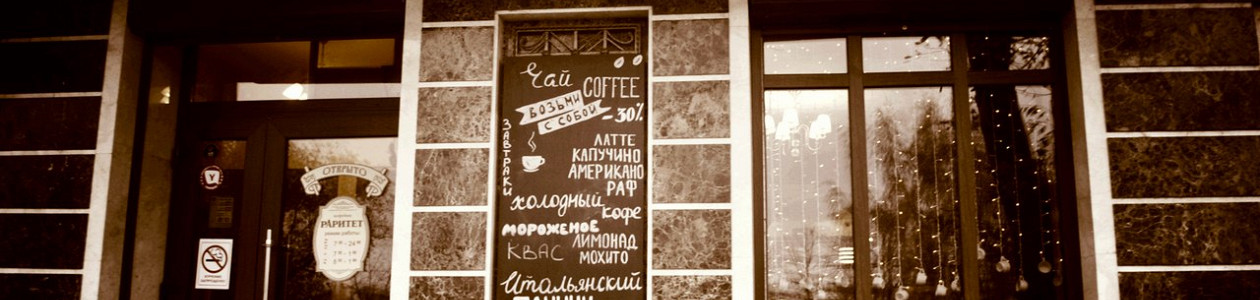 Чай
COFFEE
ВОЗЬМИ
С СОБОЙ
-30%
ЗАВТРАКИ
ЛАТТЕ
КАПУЧИНО
АМЕРИКАНО
РАФ
холодный
кофе
мороженое
КВАС
ЛИМОНАД
МОХИТО
Итальянский
ОТКРЫТО
РАРИТЕТ